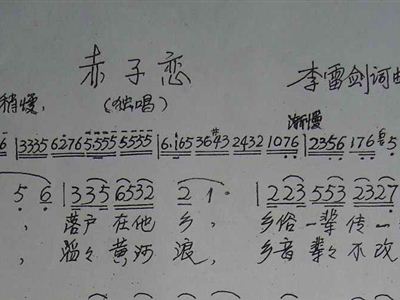 赤子恋
(独唱) 李雷剑词曲
稍慢, 渐慢
6 | 3335 6276 5555 5535 | 6·165 3643 2432 1076 | 2356 176 5
5 6 | 335 6532 2 1· | 223 553 2327
, 落户在他乡, 乡俗一辈传一
, 滔々黄河浪, 乡音辈々不改